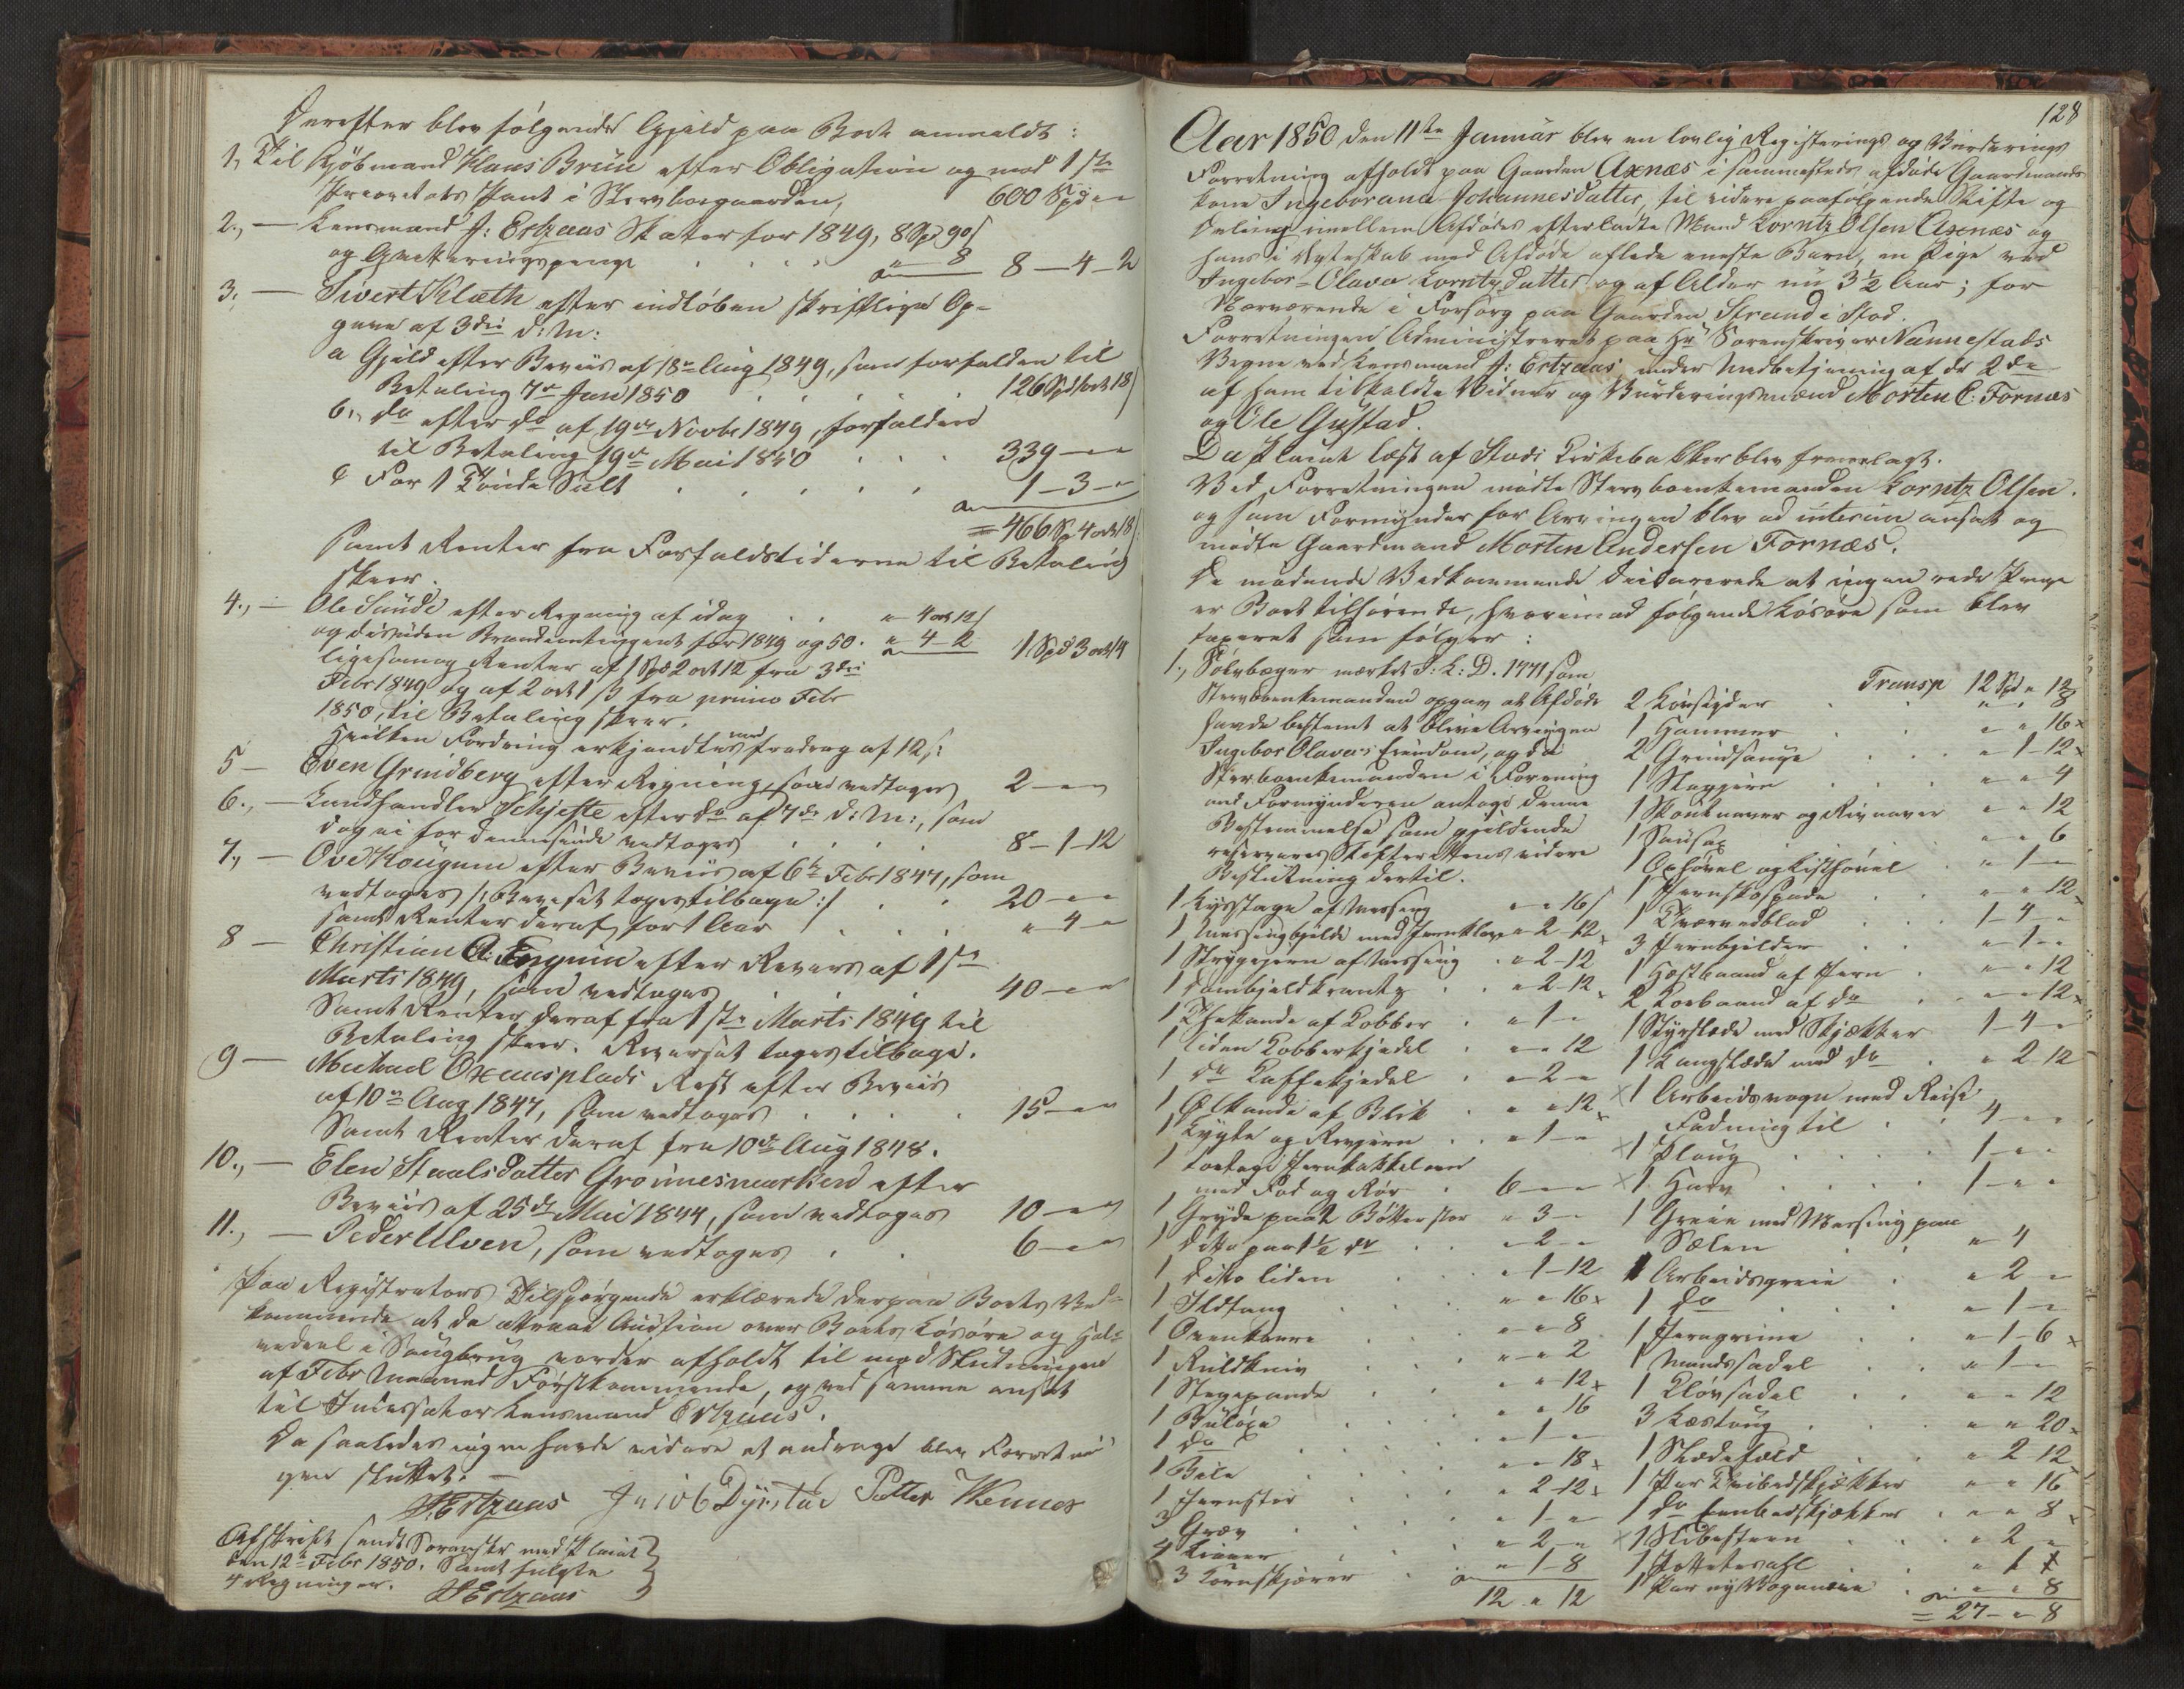 Derefter blev følgende Gjæld paa Boet anmeldt:
1, Til Kjøbmand Klaus Brüün efter Obligation og med 1ste
Prioritets Pant i Stervboegaarden, 600 Spd " "
2., — Lensmand J: Ertzaas Skatter for 1849, 8 Spd 90 s
og Qvitteringspenge . . . " 8 8 — 4 — 2
3, — Sivert Klæth efter indløben skriftlige Op-
gave af 3die d: M:
a Gjæld efter Beviis af 18de Aug 1849, som forfalden til
Betaling 7de Jan 1850 . . . . 126 Spd 1 ort 18 s
b., do efter do af 19de Novbr 1849, forfalden
til Betaling 19de Mai 1850 . . . 339 — " "
c For 1 Tønde Salt . . . . . 1 — 3 — "
= 466 Sp 4 ort 18 s
samt Renter fra Forfaldstiderne til Betaling
skeer.
4., — Ole Sunde efter Regning af idag . . " 4 ort 12 s
og desuden Brandcontingent for 1849 og 50. " 4 — 2 1 Spd 3 ort 14
ligesaa og Renter af 1 Spd 2 ort 12 fra 3die
Febr 1849 og af 2 ort 1 s fra primo Febr
1850, til Betaling skeer.
Hvilken Fordring erkjendtes med fradrag af 12 s:
5 — Even Grindberg efter Regning, som vedtoges 2 — " "
6., — Landhandler Schjefte efter do af 7de d: M:, som
dog ei for dennesinde vedtoges . . . . 8 — 1 — 12
7., — Ove Hougum efter Beviis af 6te Febr 1847, som
vedtoges /: Beviset toges tilbage :/ . . 20 — " "
samt Renter deraf for 1 Aar . . . . " 4 — "
8 — Christian A: efter Revers af 1ste
Marts 1849, som vedtoges . . . 40 — " "
Samt Renter deraf fra 1ste Marts 1849 til
Betaling skeer. Reverset toges tilbage.
9 — Michael Oxaasplads Rest efter Beviis
af 10de Aug 1847, som vedtoges . . . . 15 — " "
Samt Renter deraf fra 10de Aug 1848.
10., — Elen Staalsdatter Grønnesmarken efter
Beviis af 25de Mai 1844, som vedtoges 10 — " "
11., — Peder Ulven, som vedtoges . . 6 — " "
Paa Registrators Tilspørgende erklærede derpaa Boets Ved-
kommende at de attraar Auction over Boets Løsøre og Halv-
vedeel i Saugbrug vorder afholdt til mod Slutningen
af Febr Maaned Førstkommende, og ved samme ansat
til Incassator Lensmand Ertzaas.
Da saaledes ingen havde videre at andrage blev Forretnin-
gen sluttet. —
J. Ertzaas Jacob Dyrstad Petter Wennes
Afskrift sendt Sorenskr med Placat
den 12te Febr 1850. Samt fulgte
4 Regninger.
J. Ertzaas
128
Aar 1850 den 11te Januar blev en lovlig Registerings og Vurderings
Forretning afholdt paa Gaarden Axnæs i sammesteds afdøde Gaardmands
kone Ingeborana Johannesdatter, til videre paafølgende Skifte og
Deling imellem Afdødes efterladte Mand Lorntz Olsen Axnæs og
hans i Ægteskab med Afdøde aflede eneste Barn, en Pige ved
Ingebor-Olava Lorntzdatter og af Alder nu 3 ½ Aar; for
Nærværende i Forsørg paa Gaarden Strand i Stod.
Forretningen Administreret paa Hr Sorenskriver Nannestads
Vegne ved Lensmand J: Ertzaas, under Medbetjening af de 2de
af ham tilkaldte Vidner og Vurderingsmænd Morten C. Fornæs
og Ole Gustad.
Da Placat læst af Stods Kirkebakker blev fremlagt.
Ved Forretningen mødte Stervboenkemanden Lorntz Olsen.
og som Formynder for Arvingen blev ad interim ansat og
mødte Gaardmand Morten Andersen Fornæs.
De mødende Vedkommende declarerede at ingen rede Penge
er Boet tilhørende, hvorimod følgende Løsøre som blev
taxeret som følger:
1., Sølvbæger mærket I: L: D. 1771 som
Stervboenkemanden opgav at Afdøde
havde bestemt at blive Arvingen
Ingebor Olavas Eiendom, og da
Stervboenkemanden i Forening
med Formynderen antage denne
Bestemmelse som gjeldende
reserveres Skifterettens videre
Beslutning dertil.
1 Lysstage af Messing " " 16 s
1 Messingbjelde med Jernklave " 2 — 12
1 Strygejern af Messing . " 2 — 12
1 Dombjeldkrants . . " 2 — 12
1 Thekande af Kobber . " 1 — "
1 liden Kobberkjedel . " " 12
1 do Kaffekjedel . " 2 — "
1 Ølkande af Blik . " " 12
1 Lygte og Rivjern . . " 1 — "
1 toetages Jernkakkelovn
med Fod og Rør . 6 — " "
1 Gryde paa 2 Bøtter stor " 3 — "
1 ditto paa 1 ½ do . . " 2 — "
1 ditto liden . . . " 1 — 12
1 Ildtang . . . " " 16
1 Ovenkavre . . . " " 8
1 Ruldkniv . . . " " 2
1 Stegepande . . . " " 12
1 Buløxe . . . " " 16
1 do . . . " 1 — "
1 Bile . . . " " 18
1 Jernstør . . . " 2 — 12
3 Græv . . . " 1 — "
4 Liaaer . . . " 2 — "
3 Kornskjærer . . " 1 — 8
12 " 12
Transp 12 Spd " 12 s
2 Løvsigder . . " " 8
1 Hammer . . " " 16
2 Grindsauge . . " 1 — 12
1 Stagjern . . . " " 4
1 Skottnaver og Rivnaver " " 12
1 Sausax . . " " 6
1 Oxhøvel og Listhøvel . " 1 — "
1 Jernskospade . . " " 12
1 Tværvedblad . . . 1 — 4 — "
3 Jernbjelder . . " 1 — "
1 Hæstbaand af Jern . " " 12
2 Koebaand af do . . " " 12
1 Stydslæde med Skjækker 1 — 4 — "
1 Langslæde med do . . " 2 — 12
1 Arbeidsvogn med Reise
Fadning til . . 4 — " "
1 Ploug . . . . 1 — " "
1 Harv . . . . 1 — " "
1 Greie med Messing paa
Sælen . . . " 4
1 Arbeidsgreie . . " 2 — "
1 do . . . " 1 — "
1 Jerngrime . . " 1 — 6
1 Mandssadel . . " 1 — "
1 Kløvsadel . . " " 12
3 Læstoug . . . " " 20
1 Slædefæld . . " 2 — 12
1 Par Tveibedskjækker " " 16
1 do Eenbedskjækker . " " 8
1 Slibesteen . . " 2 — "
1 . . " 1
1 Par ny . " " 8
= 27 — " — 8